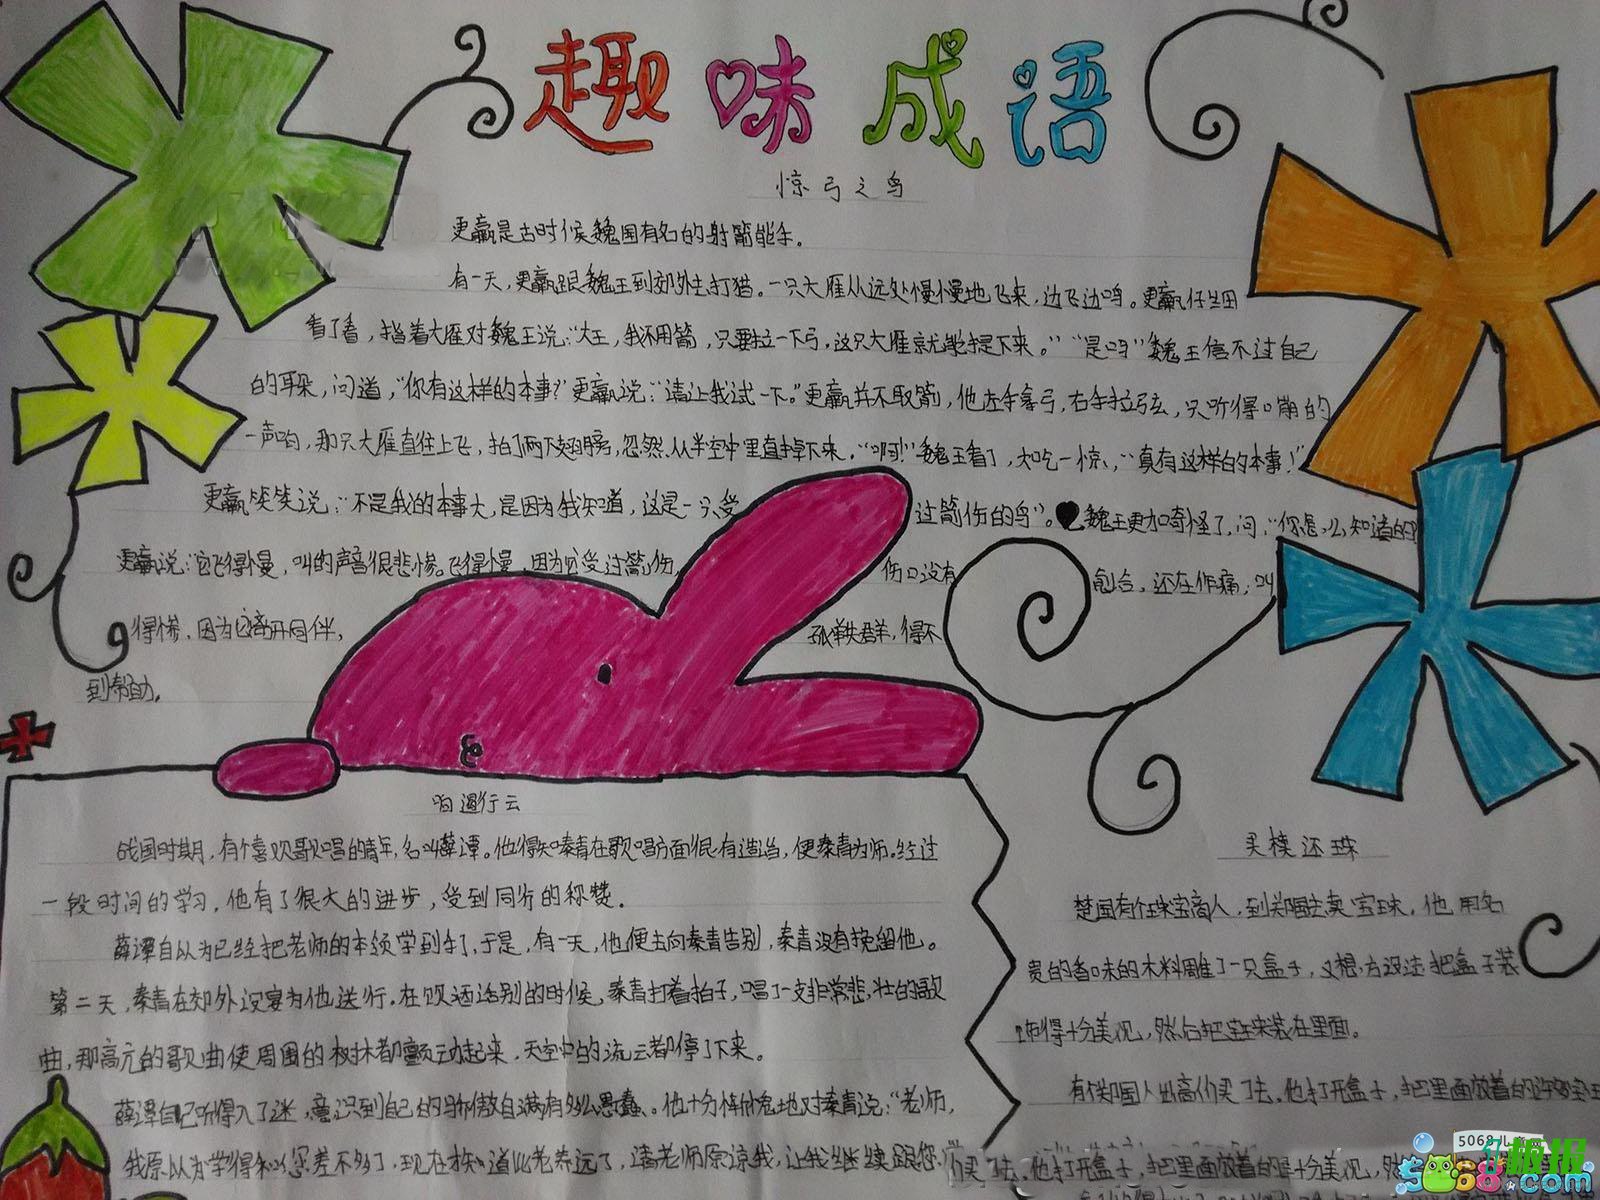 趣味成语
惊弓之鸟
更羸是古时候魏国有名的射箭能手。
有一天,更羸跟魏王到郊外去打猎。一只大雁从远处慢慢地飞来,边飞边鸣。更羸仔细
看了看,指着大雁对魏王说:“大王,我不用箭,只要拉一下弓,这只大雁就能掉下来。”“是吗”魏王信不过自己
的耳朵,问道,“你有这样的本事?”更羸说:“请让我试一下。”更羸并不取箭,他左手拿弓,右手拉弦,只听得嘣的
一声响,那只大雁直往上飞,拍了两下翅膀,忽然从半空中里直掉下来。“啊!”魏王看了,大吃一惊,“真有这样的本事!”
更羸笑笑说:“不是我的本事大,是因为我知道,这是一只受过箭伤的鸟”。魏王更加奇怪了,问:“你怎么知道的?
更羸说:它飞得慢,叫的声音很悲惨。飞得慢,因为它受过箭伤,伤口没有愈合,还在作痛;叫
得惨,因为它离开同伴,孤单失群,得不
到帮助。
响遏行云
战国时期,有个喜欢歌唱的青年,名叫薛谭。他得知秦青在歌唱方面很有造诣,便秦青为师。经过
一段时间的学习,他有了很大的进步,受到同行的称赞。
薛谭自以为已经把老师的本领学到手了,于是,有一天,他便去向秦青告别,秦青没有挽留他。
第二天,秦青在郊外设宴为他送行。在饮酒话别的时候,秦青打着拍子,唱了一支非常悲壮的歌
曲,那高亢的歌曲使周围的树木都颤动起来,天空中的流云都停了下来。
薛谭自己听得入了迷,意识到自己的骄傲自满有多么愚蠢。他十分惭愧地对秦青说:“老师,
我原以为学得和您差不多了,现在才知道此差远了,请老师原谅我,让我继续跟您
买椟还珠
楚国有个珠宝商人,到郑国去卖宝珠,他用名
贵的香味的木料雕了一只盒子,又想方设法把盒子装
饰得十分美观,然后把宝珠装在里面。
有个郑国人出高价买了去。他打开盒子,把里面放着的许多宝珠
买了去。他打开盒子,把里面放着的
十分美观,
5068儿童网
板报
5068.com